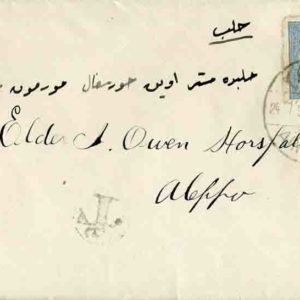 حلب
حلبده مستر اوين حورسفال مورمون
Elder J. Owen Horsfal
Aleppo
A.I.
24